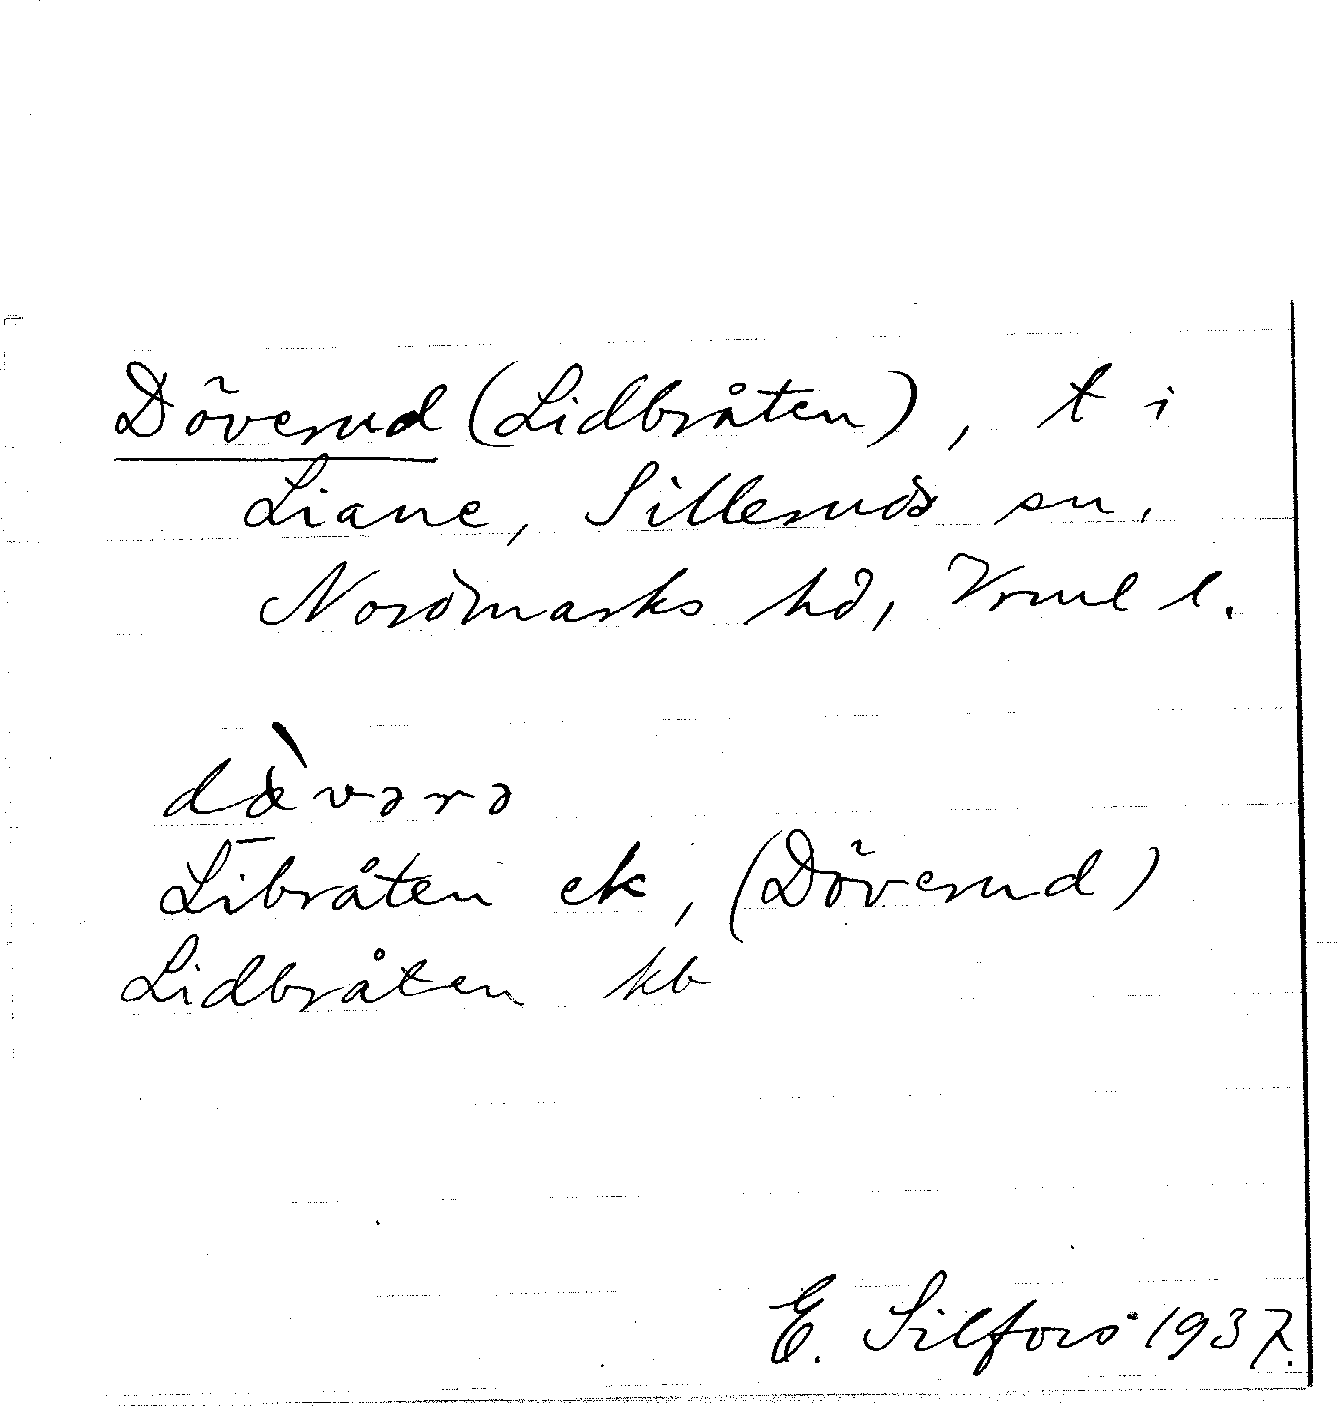 Döverud (Lidbråten), t i
Liane, Silleruds sn,
Nordmarks hd, Vrml l.
dœ̀vərə
Lībråten ek, (Döverud)
Lidbråten kb
E. Silfors 1937.